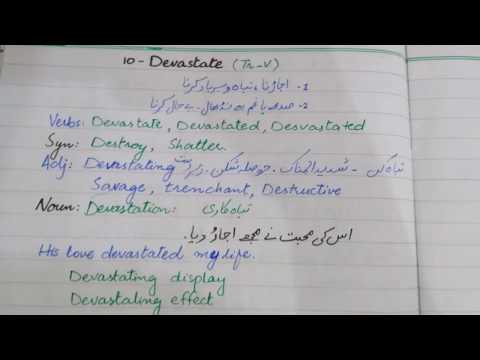 10- Devastate (Tr-V)
1. اجاڑنا ، تباہ و برباد کرنا
2. صدمہ یا غم سے نڈھال۔ بے حال کرنا
Verbs: Devastate, Devastated, Desvastated
Syn: Destroy, Shatter.
Adj: Devastating تباہ کن - شدید المناک. حوصلہ شکن. زبردست
Savage, trenchant, Destructive
Noun: Devastation: تباہ کاری
اس کی محبت نے مجھے اجاڑ دیا.
His love devastated my life.
Devastating display
Devastating effect